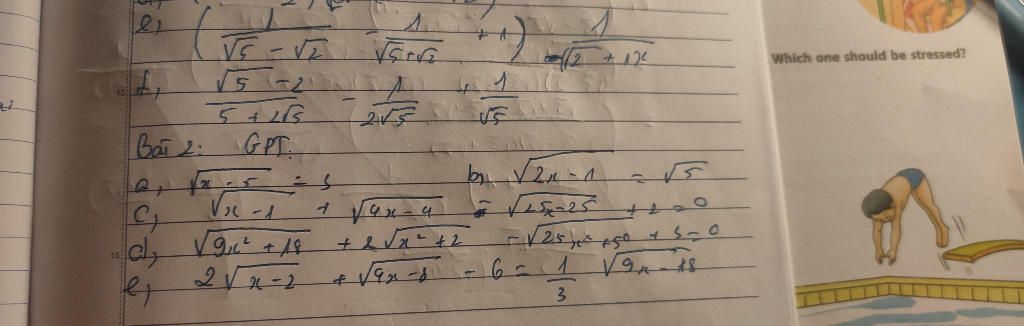 e, ( 1/(√5 - √2) - 1/(√5+√2) + 1 ) 1/(√2 + 1)²
f, (√5 - 2)/(5 + 2√5) - 1/(2√5) + 1/√5
10
Bài 2: GPT:
a, √(x - 5) = 3
b, √(2x - 1) = √5
c, √(x - 1) + √(4x - 4) - √(25x-25) + 2 = 0
d, √(9x² + 18) + 2√(x² + 2) - √(25x² + 50) + 3 = 0
15
e, 2√(x - 2) + √(4x - 8) - 6 = 1/3 √(9x - 18)
Which one should be stressed?